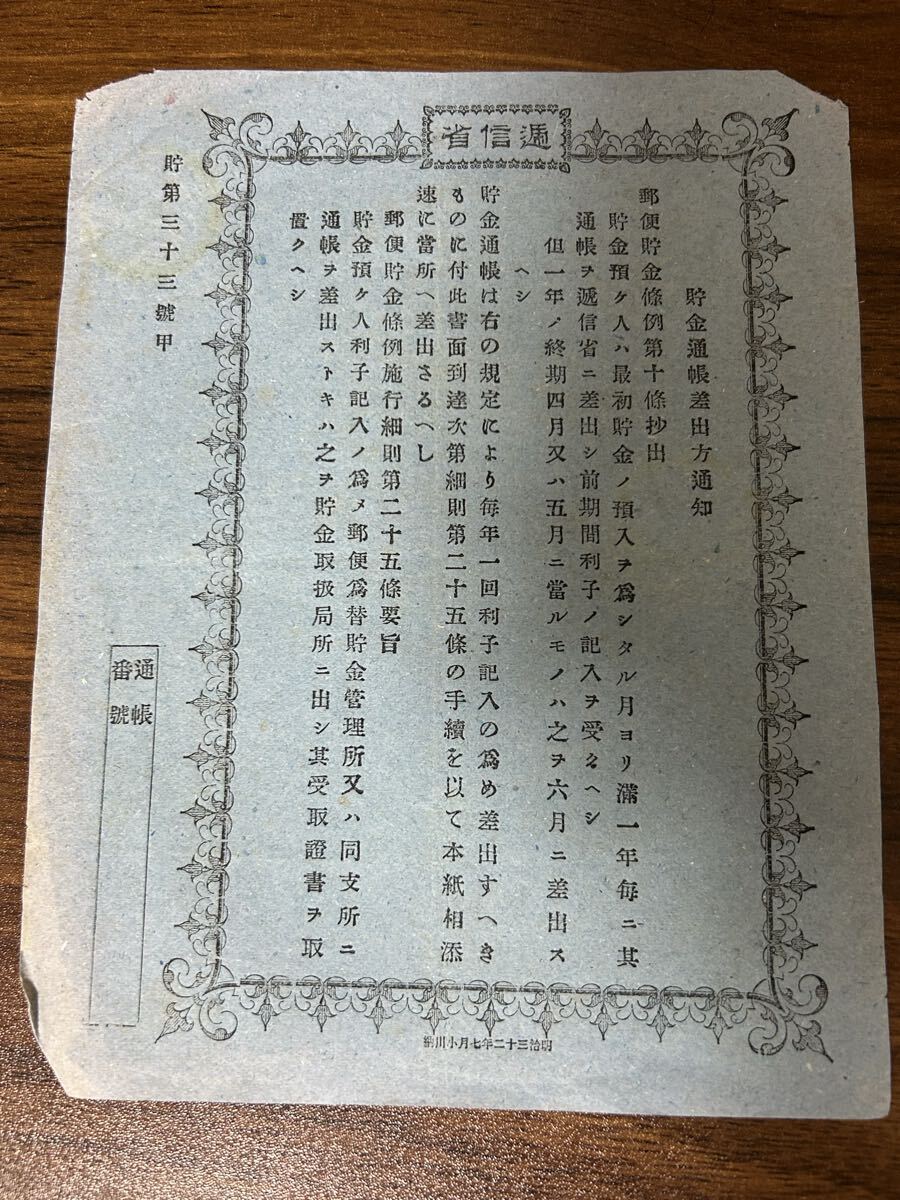 遞信省
貯金通帳差出方通知
郵便貯金條例第十條抄出
貯金預ケ人ハ最初貯金ノ預入ヲ爲シタル月ヨリ滿一年每ニ其
通帳ヲ遞信省ニ差出シ前期間利子ノ記入ヲ受クヘシ
但一年ノ終期四月又ハ五月ニ當ルモノハ之ヲ六月ニ差出ス
ヘシ
貯金通帳は右の規定により每年一回利子記入の爲め差出すへき
ものに付此書面到達次第細則第二十五條の手續を以て本紙相添
速に當所へ差出さるへし
郵便貯金條例施行細則第二十五條要旨
貯金預ケ人利子記入ノ爲メ郵便爲替貯金管理所又ハ同支所ニ
通帳ヲ差出ストキハ之ヲ貯金取扱局所ニ出シ其受取證書ヲ取
置クヘシ
貯第三十三號甲
通帳
番號
明治三十二年七月小川納